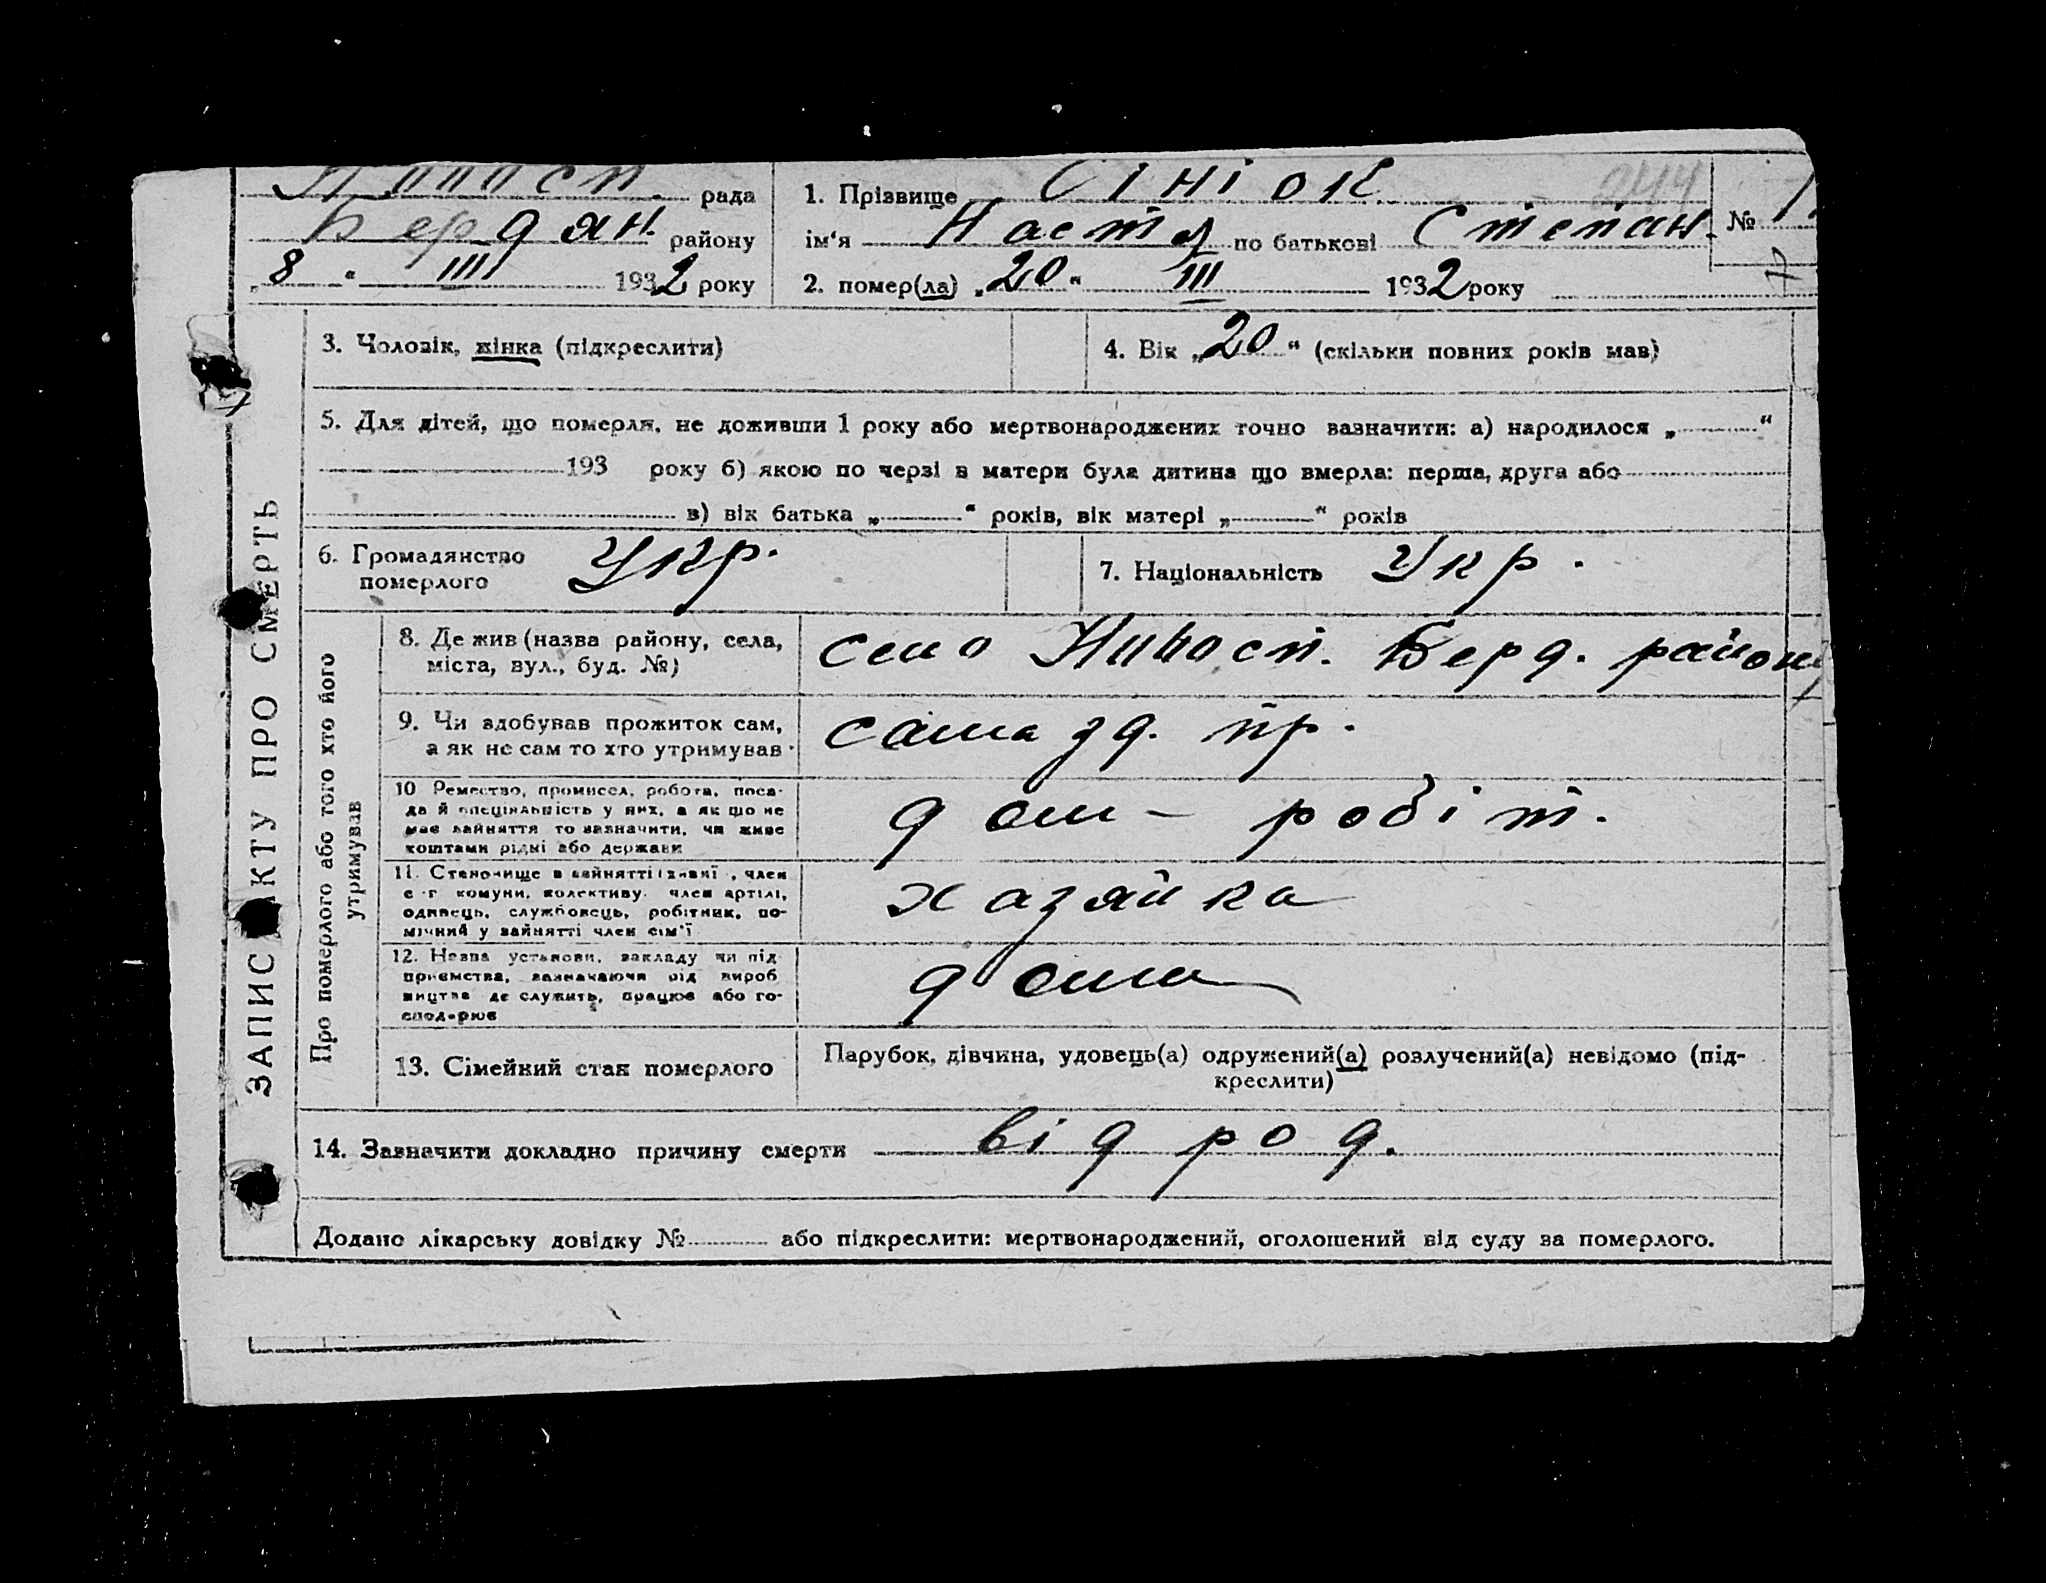 рада
Бердян. району
„8“ III 1932 року
1. Прізвище Сніок 244
ім'я Настя по батькові Степан. №
2. помер(ла) „20“ III 1932 року
ЗАПИС АКТУ ПРО СМЕРТЬ
3. Чоловік, жінка (підкреслити)
4. Вік „20“ (скільки повних років мав)
5. Для дітей, що померли, не доживши 1 року або мертвонароджених точно зазначити: а) народилося „ “
193 року б) якою по черзі в матери була дитина що вмерла: перша, друга або
в) вік батька „ “ років, вік матері „ “ років
6. Громадянство
померлого
Укр.
7. Національність Укр.
Про померлого або того хто його
утримував
8. Де жив (назва району, села,
міста, вул., буд. №)
село Берд. району
9. Чи здобував прожиток сам,
а як не сам то хто утримував
сама зд. пр.
10 Ремество, промисел, робота, поса-
да й спеціяльність у них, а як що не
має зайняття то зазначити, чи живе
коштами рідні або держави
дом - робіт.
11. Становище в зайнятті член
с-г комуни, колективу член артілі,
одинець, службовець, робітник, по-
мічний у зайнятті член сім'ї
хазяйка
12. Назва установи, закладу чи під
приємства, зазначаючи рід вироб
ництва де служить, працює або го-
сподарює
дома
13. Сімейний стан померлого
Парубок, дівчина, удовець(а) одружений(а) розлучений(а) невідомо (під-
креслити)
14. Зазначити докладно причину смерти від род.
Додано лікарську довідку № або підкреслити: мертвонароджений, оголошений від суду за померлого.